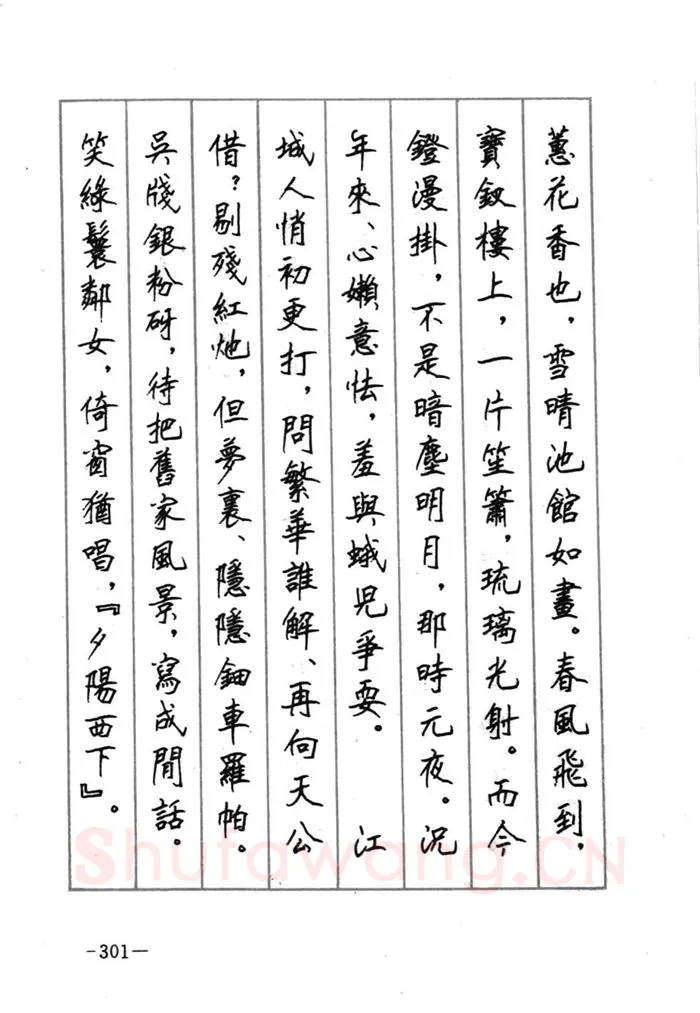 蕙花香也，雪晴池館如畫。春風飛到，
寶釵樓上，一片笙簫，琉璃光射。而今
鐙漫掛，不是暗塵明月，那時元夜。况
年來、心嬾意怯，羞與蛾兒爭耍。　江
城人悄初更打，問繁華誰解、再向天公
借？剔殘紅灺，但夢裏、隱隱鈿車羅帕。
吳牋銀粉砑，待把舊家風景，寫成閒話。
笑綠鬟鄰女，倚窗猶唱，『夕陽西下』。
Shufawang.CN
-301—